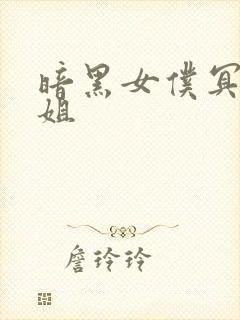 暗黑女僕冥
姐
詹玲玲